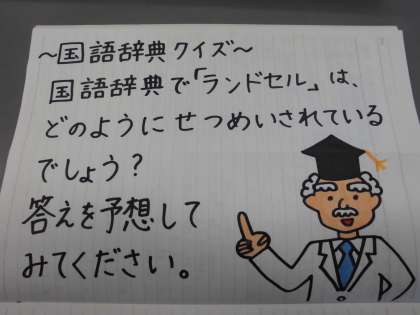 ～国語辞典クイズ～
国語辞典で「ランドセル」は、
どのようにせつめいされている
でしょう？
答えを予想して
みてください。